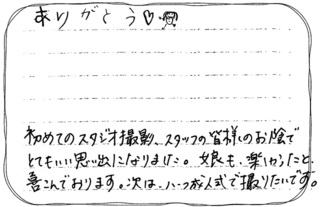 ありがとう♡
初めてのスタジオ撮影、スタッフの皆様のお陰で
とてもいい思い出になりました。娘も、楽しかったと、
喜こんでおります。次は、ハーフ成人式で撮りたいです。